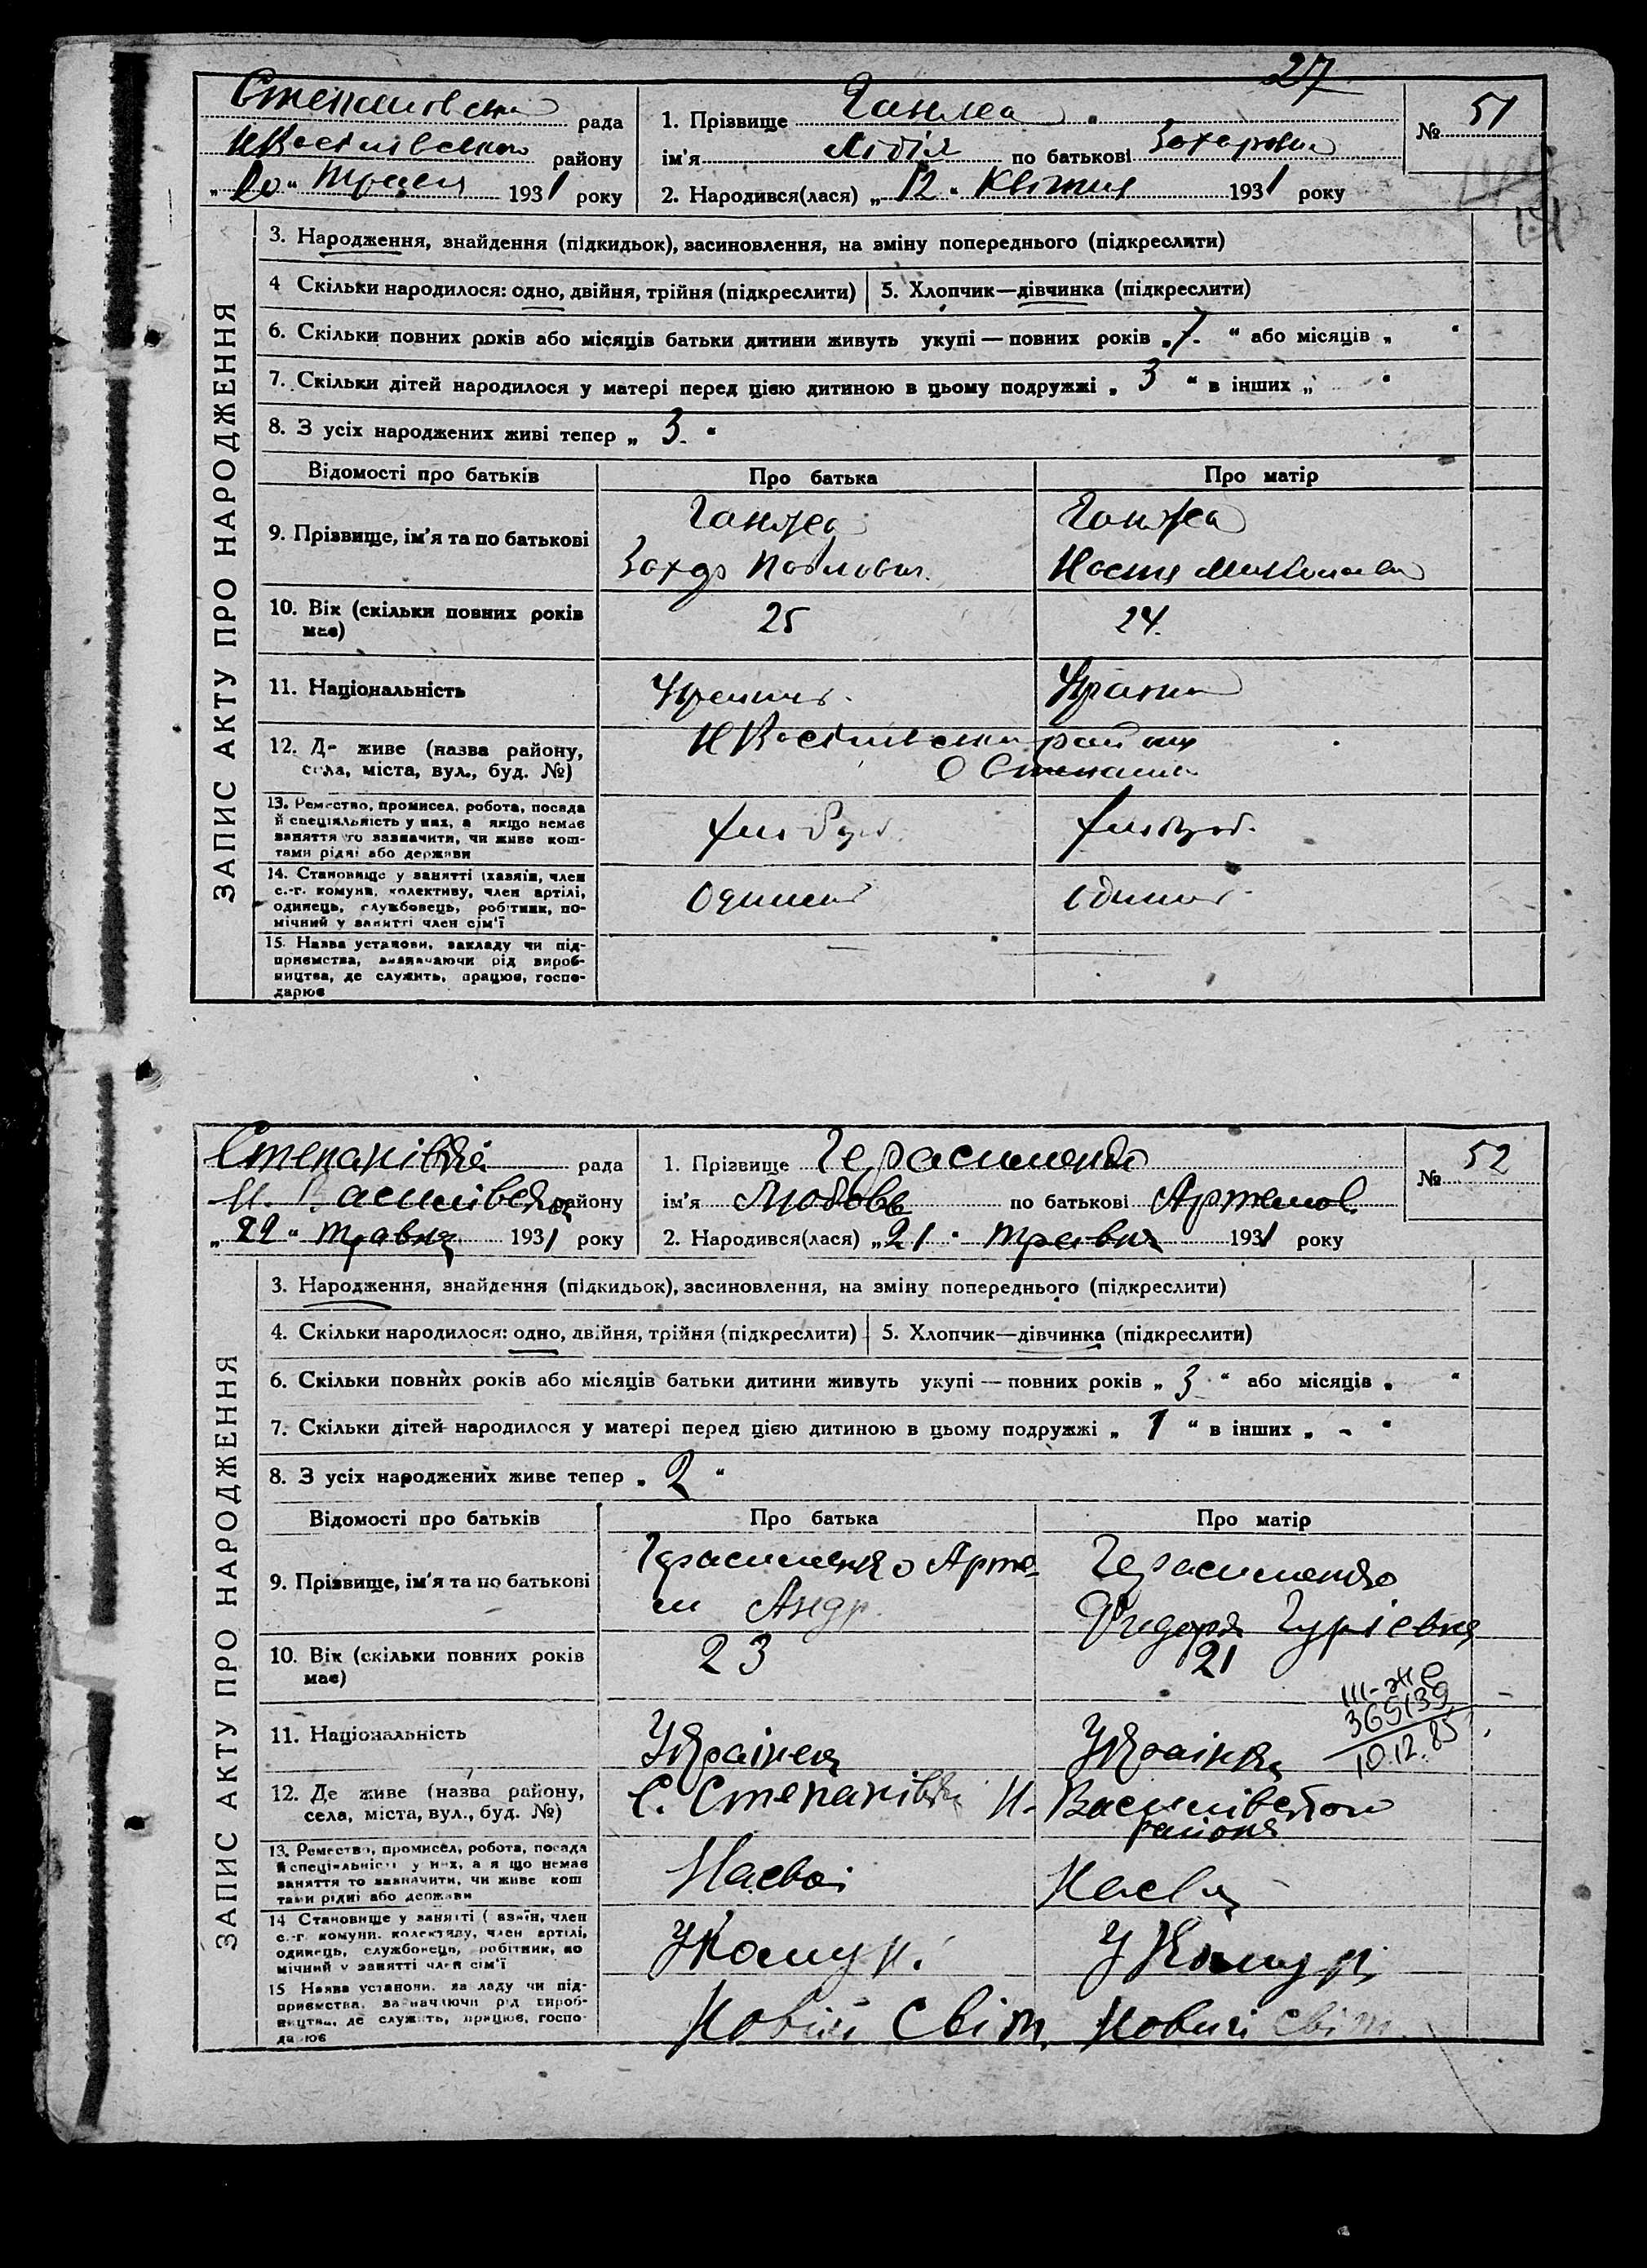 27
Степановська рада
Н Василівського району
„ 20 “ Травня 1931 року
1. Прізвище Ганжа
ім'я Лідія по батькові Захаровна
2. Народився(лася) „ 12 “ Квітня 1931 року
№ 51
ЗАПИС АКТУ ПРО НАРОДЖЕННЯ
3. Народження, знайдення (підкидьок), засиновлення, на зміну попереднього (підкреслити)
4 Скільки народилося: одно, двійня, трійня (підкреслити) 5. Хлопчик—дівчинка (підкреслити)
6. Скільки повних років або місяців батьки дитини живуть укупі — повних років „ 7 “ або місяців „ “
7. Скільки дітей народилося у матері перед цією дитиною в цьому подружжі „ 3 “ в інших „ “
8. З усіх народжених живі тепер „ 3 “
Відомості про батьків Про батька Про матір
9. Прізвище, ім'я та по батькові
Ганжа Ганжа
Захар Павлович Настя Миколаевна
10. Вік (скільки повних років має) 25 24
11. Національність
12. Де живе (назва району, села, міста, вул., буд. №)
Н Василівський район
С Степанів
13. Ремество, промисел, робота, посада
й спеціяльність у них, а якщо немає
заняття то зазначити, чи живе кош-
тами рідні або держави
хлібороб. хлібороб.
14. Становище у занятті (хазяїн, член
с.-г. комуни, колективу, член артілі,
одинець, службовець, робітник, по-
мічний у занятті член сім'ї
15. Назва установи, закладу чи під-
приємства, визначаючи рід вироб-
ництва, де служить, працює, госпо-
дарює
Степанівка рада
Н. Василівського району
„ 22 “ травня 1931 року
1. Прізвище Герасименко
ім'я Любовь по батькові Артемов.
2. Народився(лася) „ 21 “ травня 1931 року
№ 52
ЗАПИС АКТУ ПРО НАРОДЖЕННЯ
3. Народження, знайдення (підкидьок), засиновлення, на зміну попереднього (підкреслити)
4. Скільки народилося: одно, двійня, трійня (підкреслити) 5. Хлопчик—дівчинка (підкреслити)
6. Скільки повних років або місяців батьки дитини живуть укупі — повних років „ 3 “ або місяців „ “
7. Скільки дітей народилося у матері перед цією дитиною в цьому подружжі „ 1 “ в інших „ - “
8. З усіх народжених живе тепер „ 2 “
Відомості про батьків Про батька Про матір
9. Прізвище, ім'я та по батькові
Герасименко Арте- Герасименко
м Андр. Федора Гуріевна
10. Вік (скільки повних років має) 23 21
III-ЖС
369139
10.12.85
11. Національність Українец Українка
12. Де живе (назва району, села, міста, вул., буд. №)
С. Степанівка Н. Василівського
района
13. Ремество, промисел, робота, посада
й спеціяльність у них, а якщо немає
заняття то зазначити, чи живе кош
тами рідні або держави
14 Становище у занятті (хазяїн, член
с.-г. комуни, колективу, член артілі,
одинець, службовець, робітник, по
мічний у занятті член сім'ї
У Комуні У Комуні
15 Назва установи, закладу чи під-
приємства, зазначаючи рід вироб-
ництва, де служить, працює, госпо-
дарює
Новий Світ Новий світ